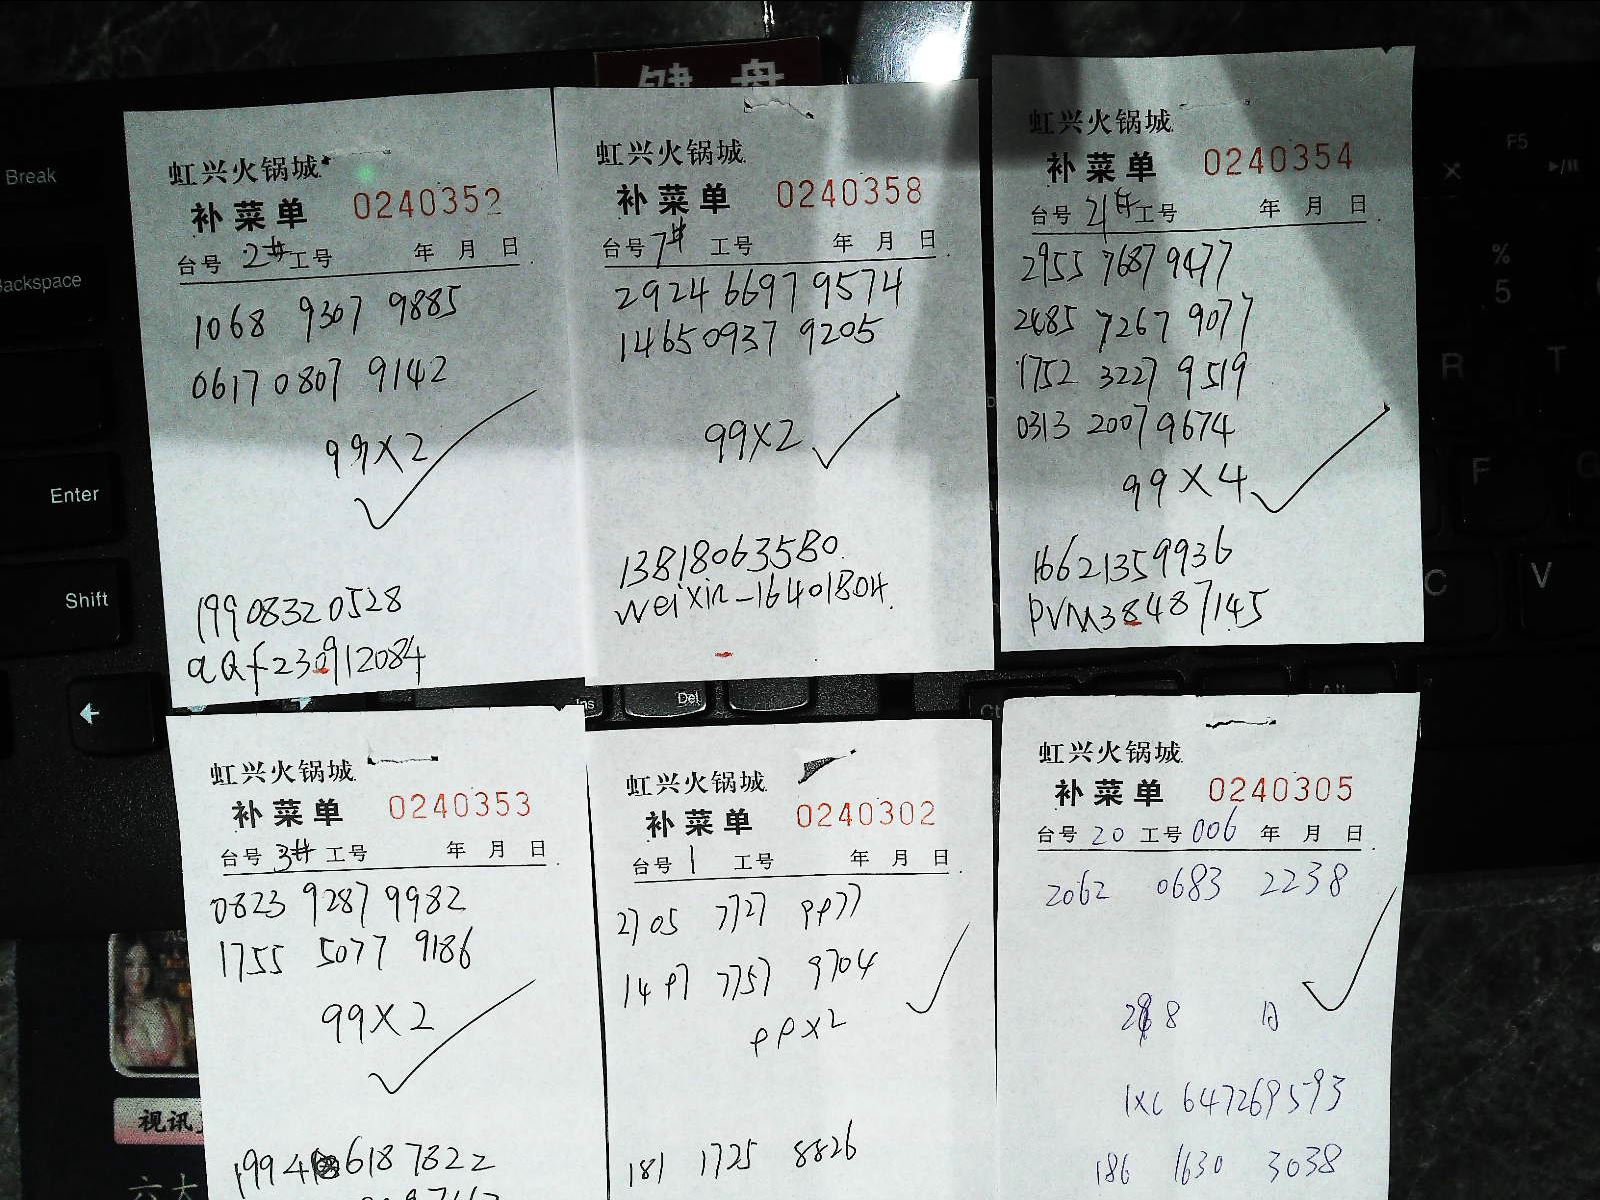 键盘
Break
Backspace
Enter
Shift
虹兴火锅城
补菜单 0240352
台号 2# 工号 年 月 日
1068 9307 9885
0617 0807 9142
99×2
19908320528
aQf230912084
虹兴火锅城
补菜单 0240358
台号 7# 工号 年 月 日
2924 6697 9574
1465 0937 9205
99×2
13818063580
weixin-16401804
虹兴火锅城
补菜单 0240354
台号 21# 工号 年 月 日
2955 7687 9477
2485 7267 9077
1752 3227 9519
0313 2007 9674
99×4
16621359936
PVM38487145
F5
%
5
R
T
F
C
V
Ins
Del
虹兴火锅城
补菜单 0240353
台号 3# 工号 年 月 日
0823 9287 9982
1755 5077 9186
99×2
1994 618 7822
虹兴火锅城
补菜单 0240302
台号 1 工号 年 月 日
2705 7727 9977
1497 7757 9704
99×2
181 1725 8826
虹兴火锅城
补菜单 0240305
台号 20 工号 006 年 月 日
2062 0683 2238
647269593
186 1630 3038
视讯
六大